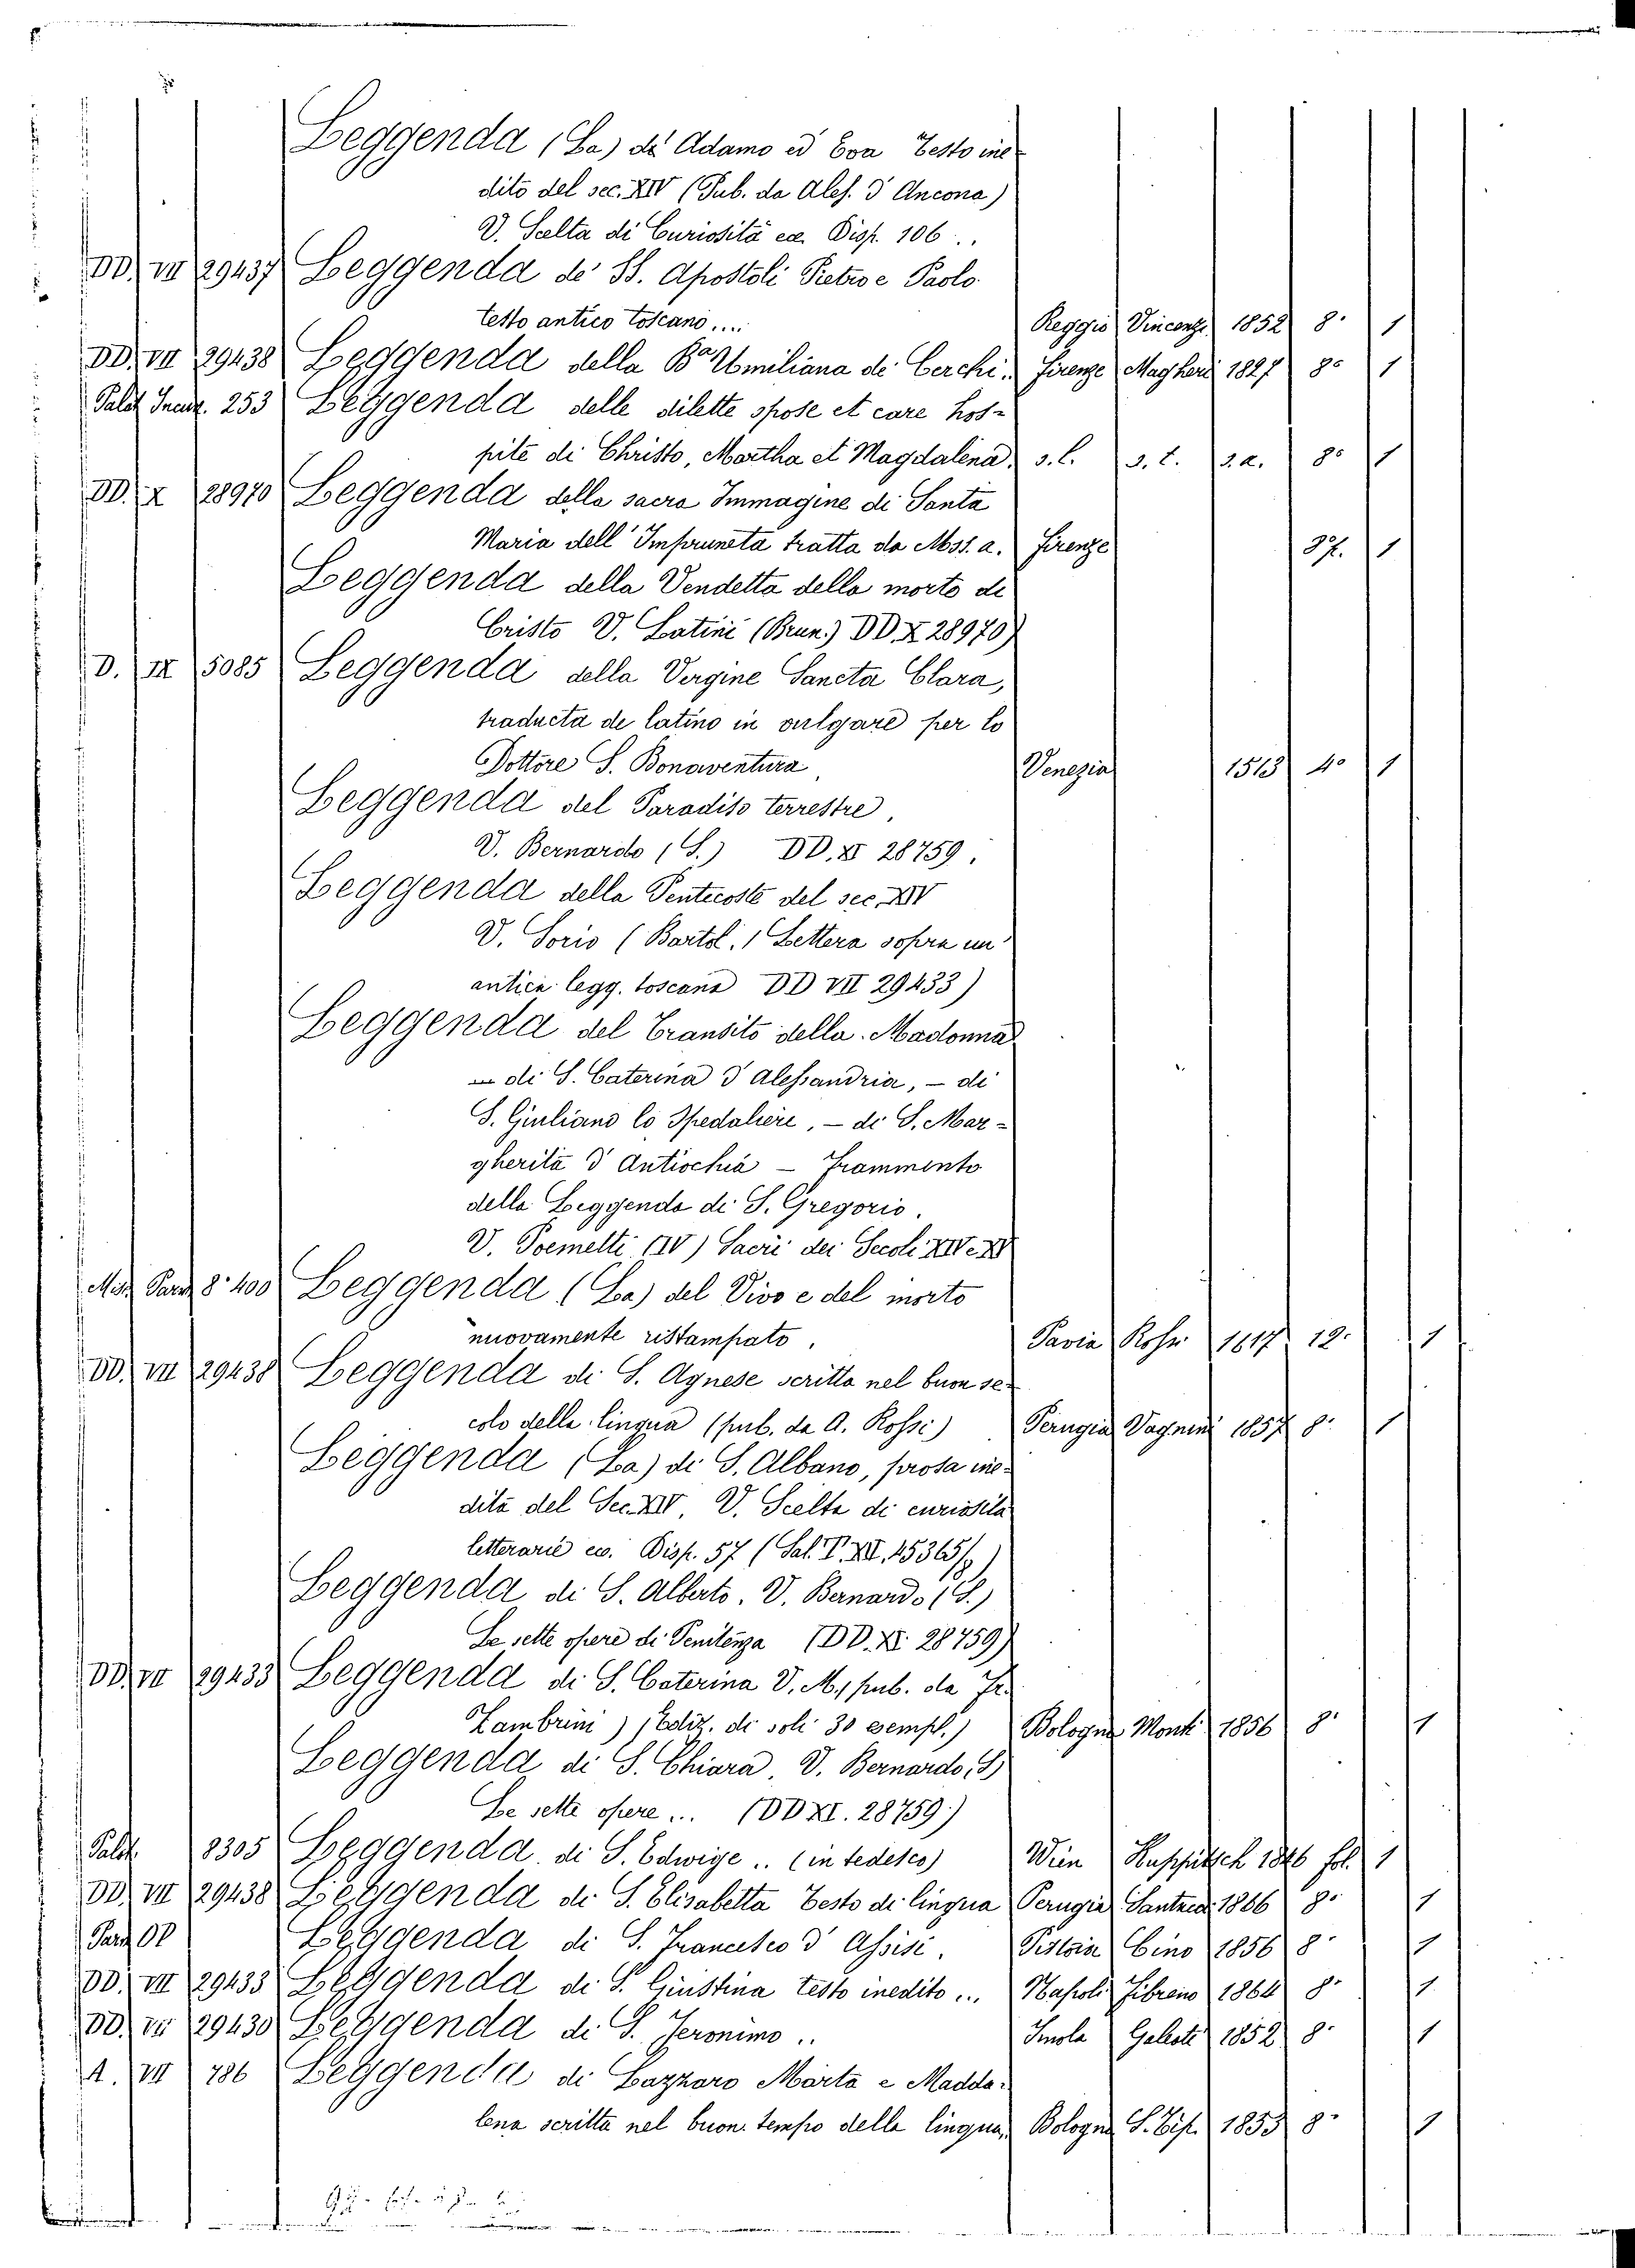 Leggenda (La) di Adamo ed Eva Testo ine
dito del sec. XIV (Pub. da Ales. D'Ancona)
V. Scelta di Curiosità ec. Disp. 106..
DD. VII 29437 Leggenda de' SS. Apostoli Pietro e Paolo
testo antico toscano.... Reggio Vincenzi 1852 8° 1
DD. VII 29438 Leggenda della Bª Umiliana de' Cerchi. Firenze Magheri 1827 8° 1
Palat Incun. 253 Leggenda delle dilette spose et care hos-
pite di Christo, Martha et Magdalena. s.l. s.t. s.a. 8° 1
DD. X 28970 Leggenda della sacra Immagine di Santa
Maria dell' Impruneta tratta da Mss. a. Firenze 1
Leggenda della Vendetta della morte di
Cristo V. Latini (Brun.) DD. X 28970)
D. IX 5085 Leggenda della Vergine Sancta Clara,
traducta de latino in vulgare per lo
Dottore S. Bonaventura Venezia 1513 4° 1
Leggenda del Paradiso terrestre,
V. Bernardo (S.) DD. XI 28759.
Leggenda della Pentecoste del sec. XIV
V. Sorio (Bartol.) Lettera sopra un'
antica legg. toscana DD VII 29433)
Leggenda del Transito della Madonna
— di S. Caterina d'Alessandria, — di
S. Giuliano lo Spedaliere, — di S. Mar-
gherita d'Antiochia — Frammento
della Leggenda di S. Gregorio.
V. Poemetti (IV) Sacri dei Secoli XIV e XV
8° 400 Leggenda (La) del Vivo e del morto
nuovamente ristampato. Pavia 1617 12° 1
DD. VII 29438 Leggenda di S. Agnese scritta nel buon se-
colo della lingua (pub. da A. Rossi) Perugia Vagnini 1857 8° 1
Leggenda (La) di S. Albano, prosa ine-
dita del Sec. XIV. V. Scelta di curiosità
letterarie ec. Disp. 57 (Sal. T. XII, 15365/
Leggenda di S. Alberto. V. Bernardo (S.)
Le sette opere di Penitenza (DD. XI 28759)
DD. VII 29433 Leggenda di S. Caterina V. M. pub. da Fr.
Zambrini) (Ediz. di soli 30 esempl.) Bologna Monti 1856 8° 1
Leggenda di S. Chiara, V. Bernardo, S)
Le sette opere... (DD XI. 28759)
Palat. 8305 Leggenda di S. Edwige.. (in tedesco) Wien 1846 fol. 1
DD. VII 29438 Leggenda di S. Elisabetta Testo di lingua Perugia Santucci 1866 8° 1
Leggenda di S. Francesco d'Assisi. Pistoia Cino 1856 8° 1
DD. VII 29433 Leggenda di S. Giustina testo inedito... Napoli Fibreno 1864 8° 1
DD. VII 29430 Leggenda di S. Jeronimo.. Imola Galeati 1852 8° 1
A. VII 786 Leggenda di Lazzaro Marta e Madda-
lena scritta nel buon tempo della lingua, Bologna S. Tip. 1853 8° 1